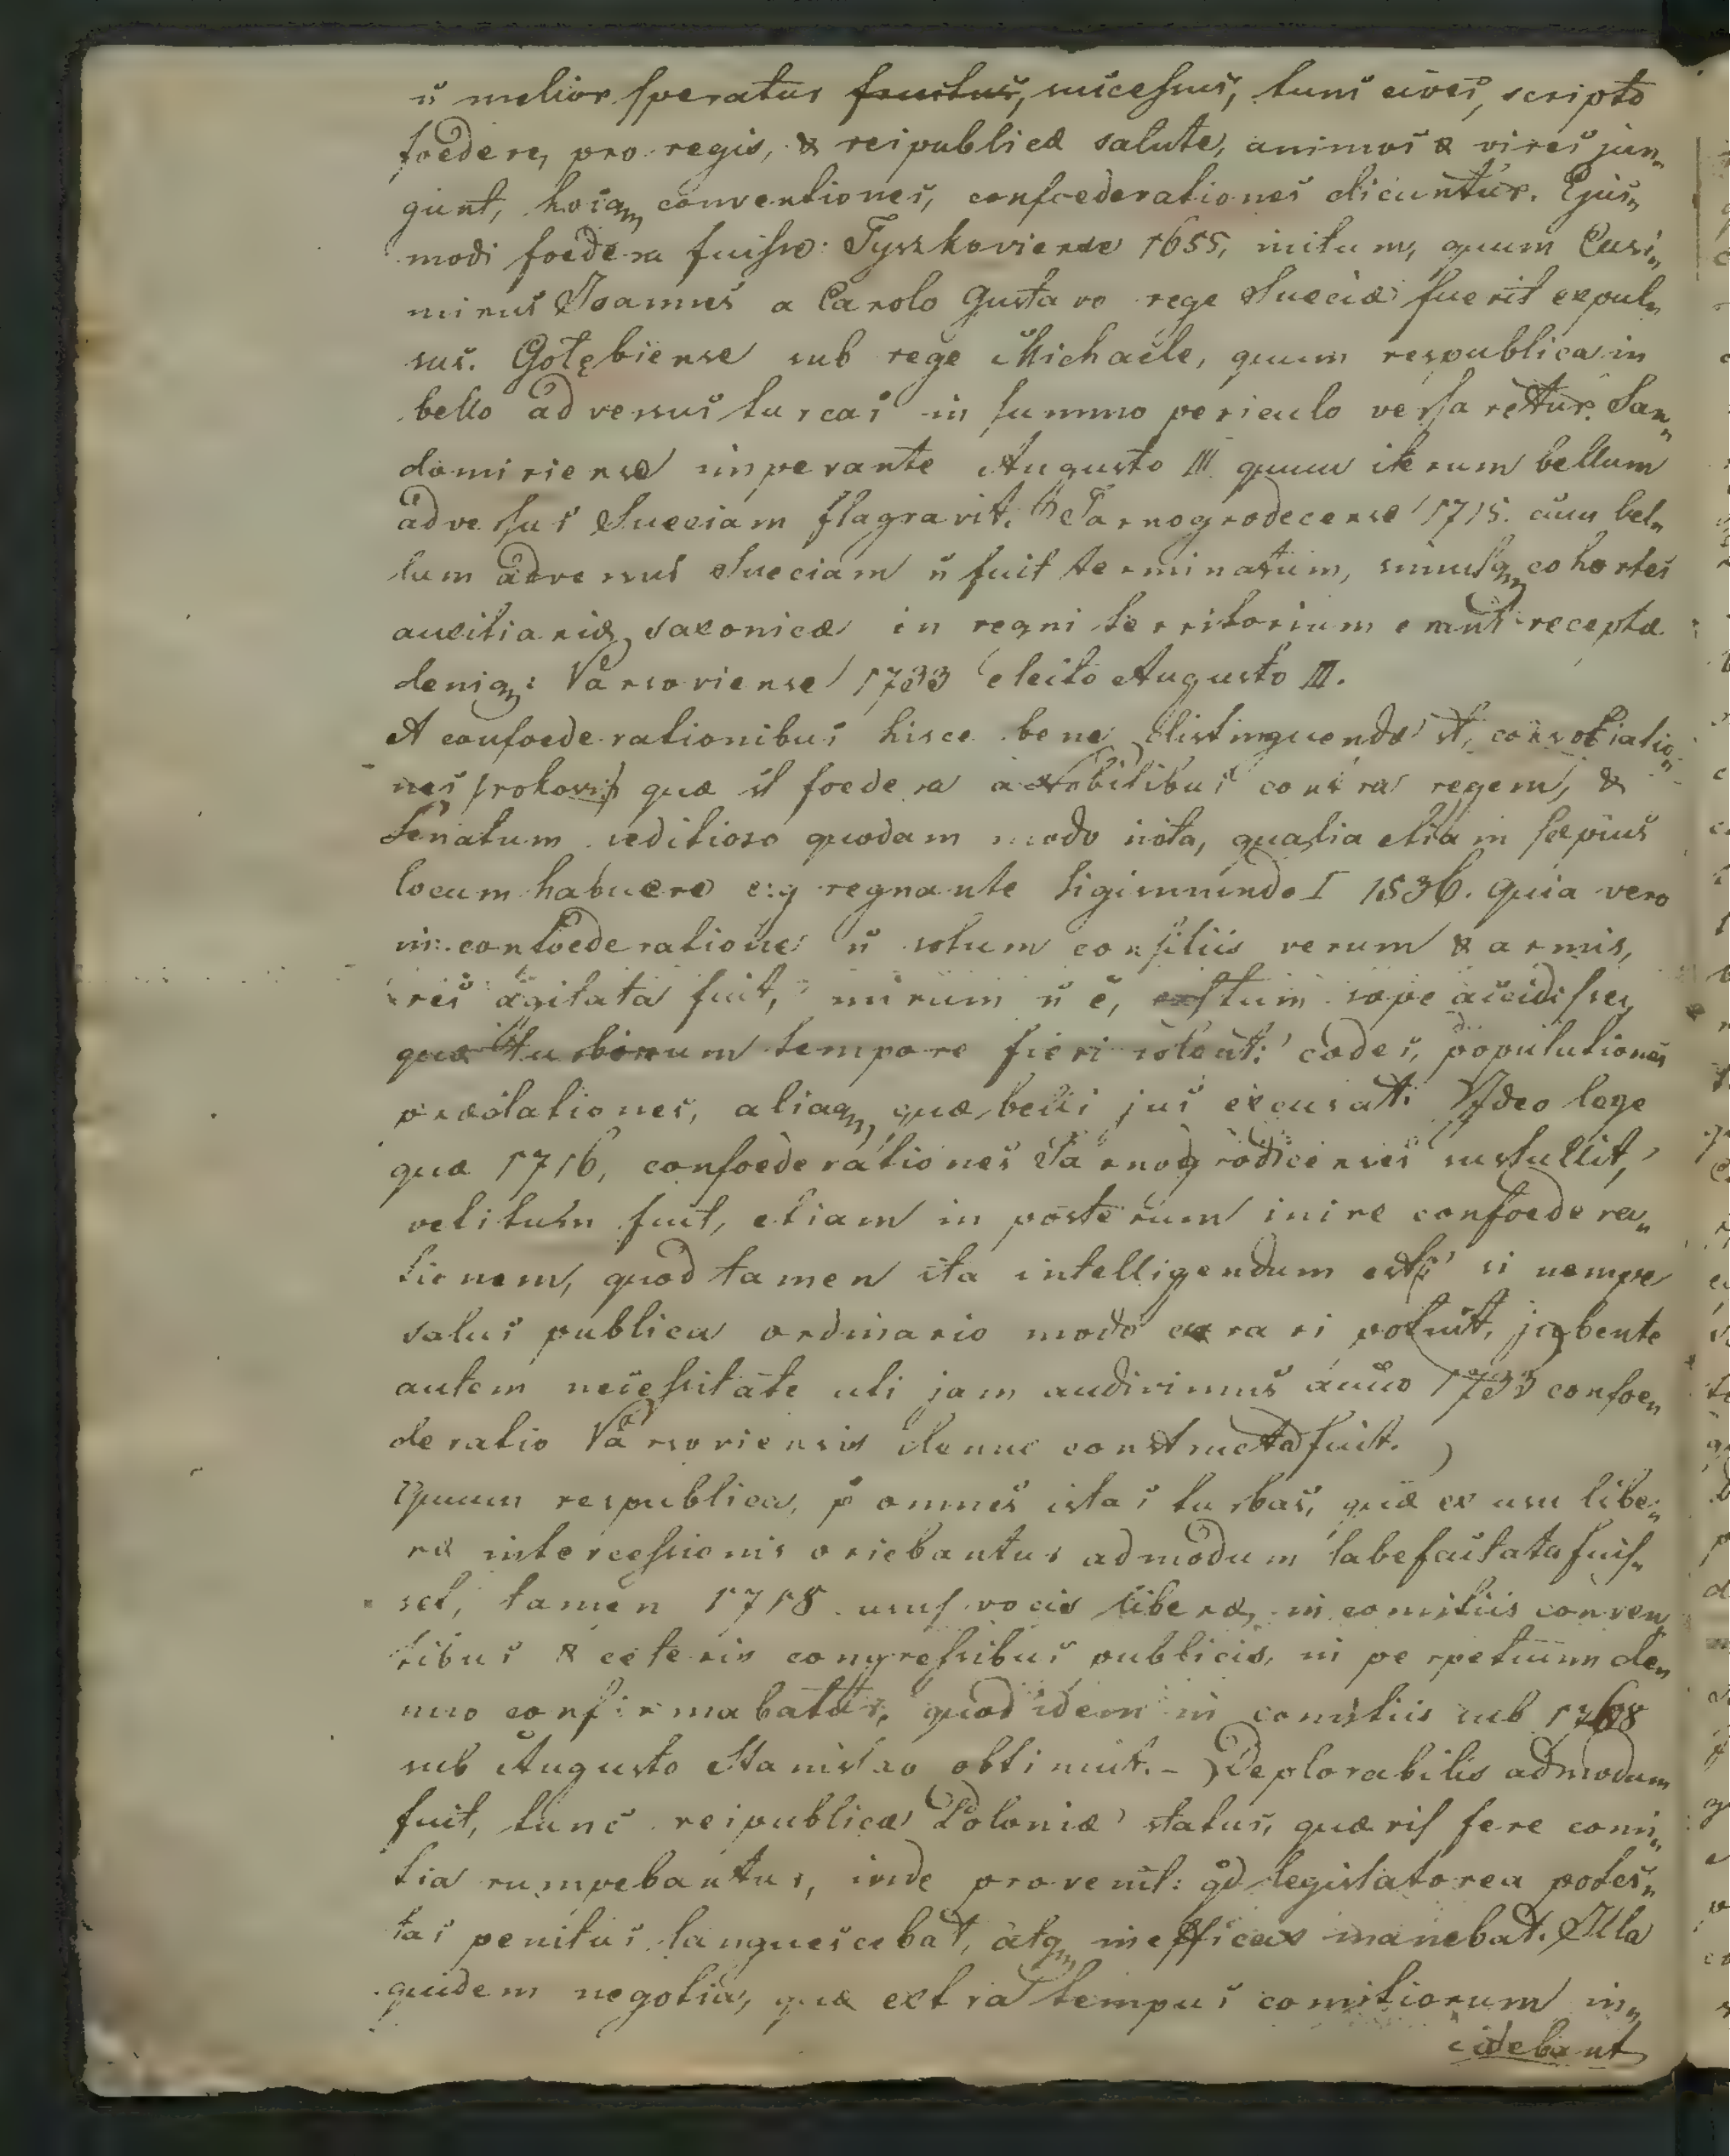 n̄ melior speratus fructus, successus, tum cives, scripto
foedere, pro regis, & reipublicæ salute, animos & vires jun„
gunt, hosq, conventiones, confoederationes dicuntur. Ejus„
modi foedera fuisse: Tyszkoviense 1655, initum, quum Casi„
mirus Joannes a Carolo Gustavo rege Sueciæ fuerit expul„
sus. Gołębiense sub rege Michaële, quum respublica in
bello adversus turcas in summo periculo versaretur. San„
domiriense imperante Augusto III quum iterum bellum
adversus Sueciam flagravit. Tarnogrodecense 1715. cum bel„
lum adversus Sueciam n̄ fuit terminatum, simulq, cohortes
auxiliariæ, saxonicæ in regni territorium erant receptæ
deniq: Varsoviense 1733 electo Augusto III.
A confoederationibus hisce bene distinguendæ st, consotiatio„
nes /rokosz/ quæ st foedera a nobilibus contra regem, &
Senatum seditioso quodam modo inita, qualia etiam sæpius
locum habuere e:g regnante Sigismundo I 1536. Quia vero
in confoederatione n̄ solum consiliis verum & armis,
res agitata fuit, mirum n̄ ē, tum sæpe accidisse,
quæ turbarum tempore fieri solent: cædes, populationes
prædationes, aliaq, quæ belli jus excusat. Ideo lege
quæ 1716, confoederationes Tarnogrodicenses sustullit,
vetitum fuit, etiam in posterum inire confoedera„
tionem, quod tamen ita intelligendum est, si nempe
salus publica ordinario modo curari potuit, jubente
autem necessitate uti jam audivimus anno 1733 confoe„
deratio Varsoviensis denuo constructa fuit.
Quum respublica, p omnes istas turbas, quæ ex usu libe„
ræ intercessionis oriebantur admodum labefactata fuis„
set, tamen 1718 usus vocis liberæ, in comitiis conven„
tibus & ceteris congressibus publicis, in perpetuum de„
nuo confirmabatur, quod idem in comitiis sub 1768
sub Augusto Stanislao obtinuit. – Deplorabilis admodum
fuit, tunc reipublicæ Poloniæ status, quævis fere comi„
tia rumpebantur, inde provenit: qd legislatorea potes„
tas penitus languescebat, atq, inefficax manebat. Illa
quidem negotia, quæ extra tempus comitiorum in„
cidebant